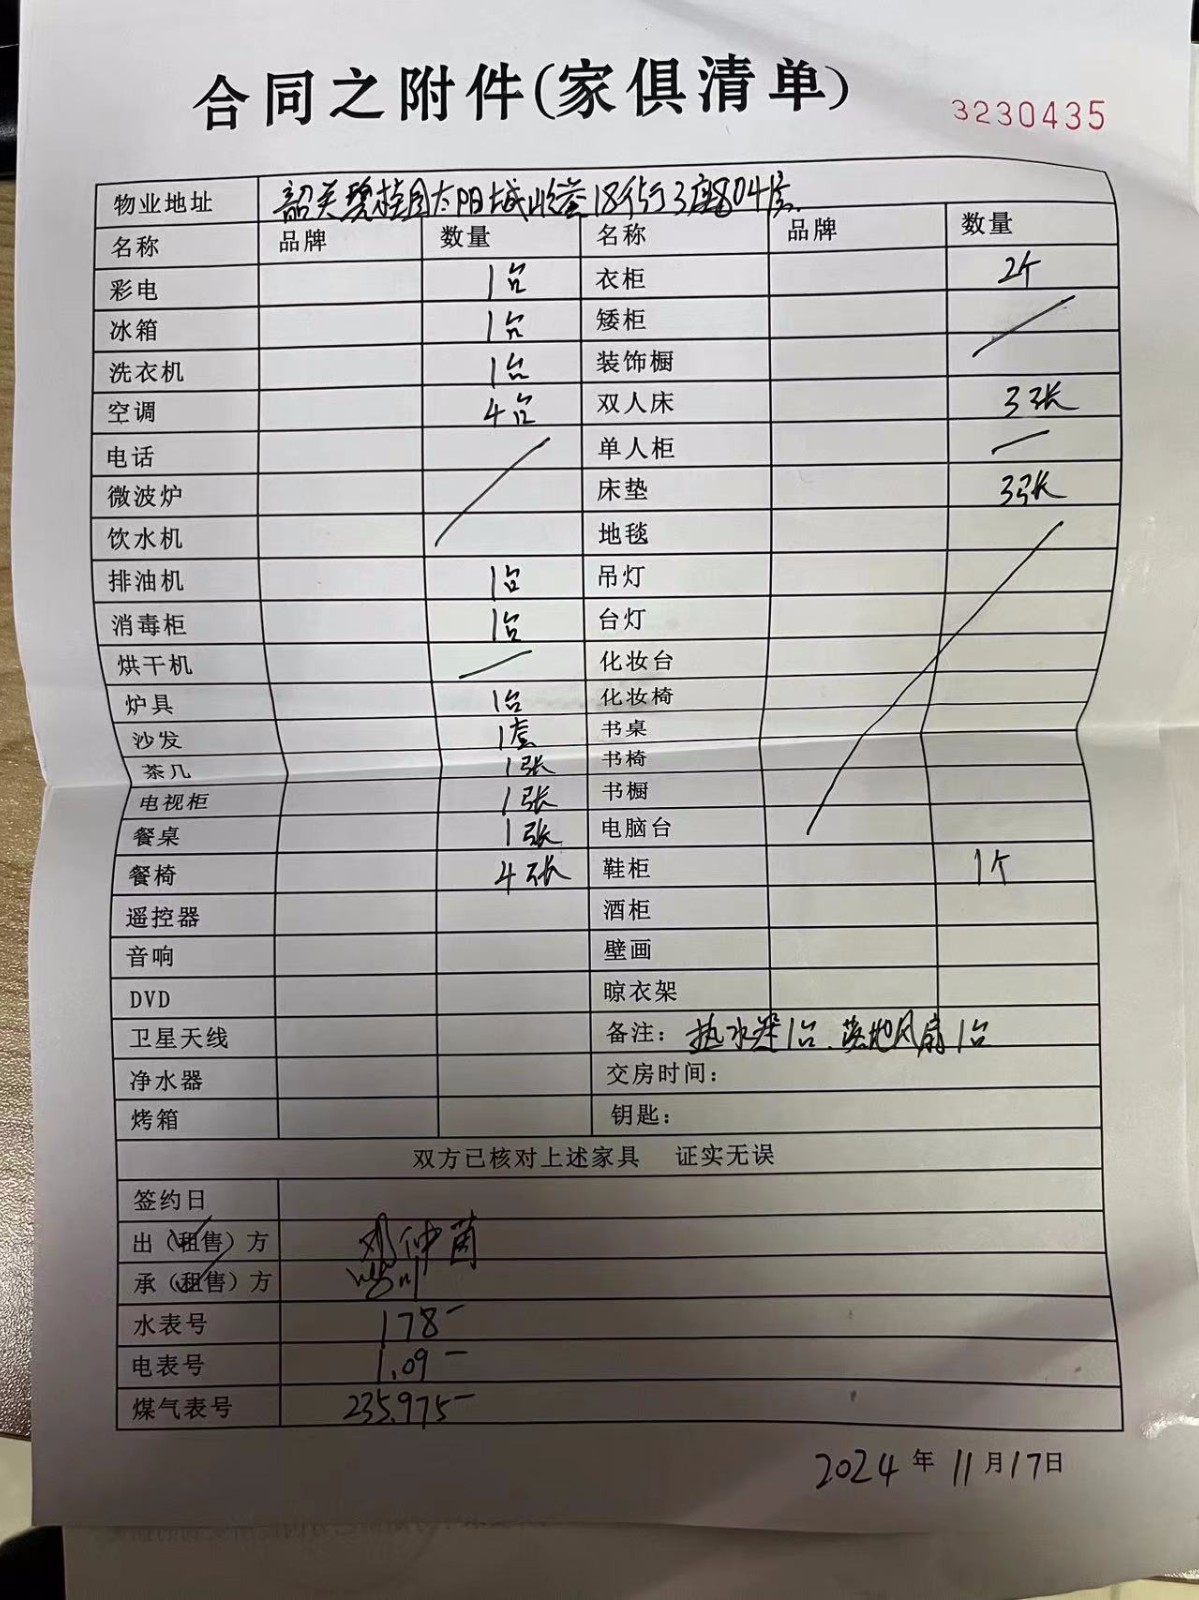 合同之附件(家俱清单)
3230435
物业地址 韶关碧桂园太阳城 18街3座804房
名称 品牌 数量 名称 品牌 数量
彩电 1台 衣柜 2个
冰箱 1台 矮柜
洗衣机 1台 装饰橱
空调 4台 双人床 3张
电话 单人柜
微波炉 床垫 3张
饮水机 地毯
排油机 1台 吊灯
消毒柜 1台 台灯
烘干机 化妆台
炉具 1台 化妆椅
沙发 1套 书桌
茶几 1张 书椅
电视柜 1张 书橱
餐桌 1张 电脑台
餐椅 4张 鞋柜 1个
遥控器 酒柜
音响 壁画
DVD 晾衣架
卫星天线 备注: 热水器1台、落地风扇1台
净水器 交房时间:
烤箱 钥匙:
双方已核对上述家具 证实无误
签约日
出(租售)方 仲茵
承(租售)方
水表号 178-
电表号 1.09-
煤气表号 235.975-
2024年11月17日